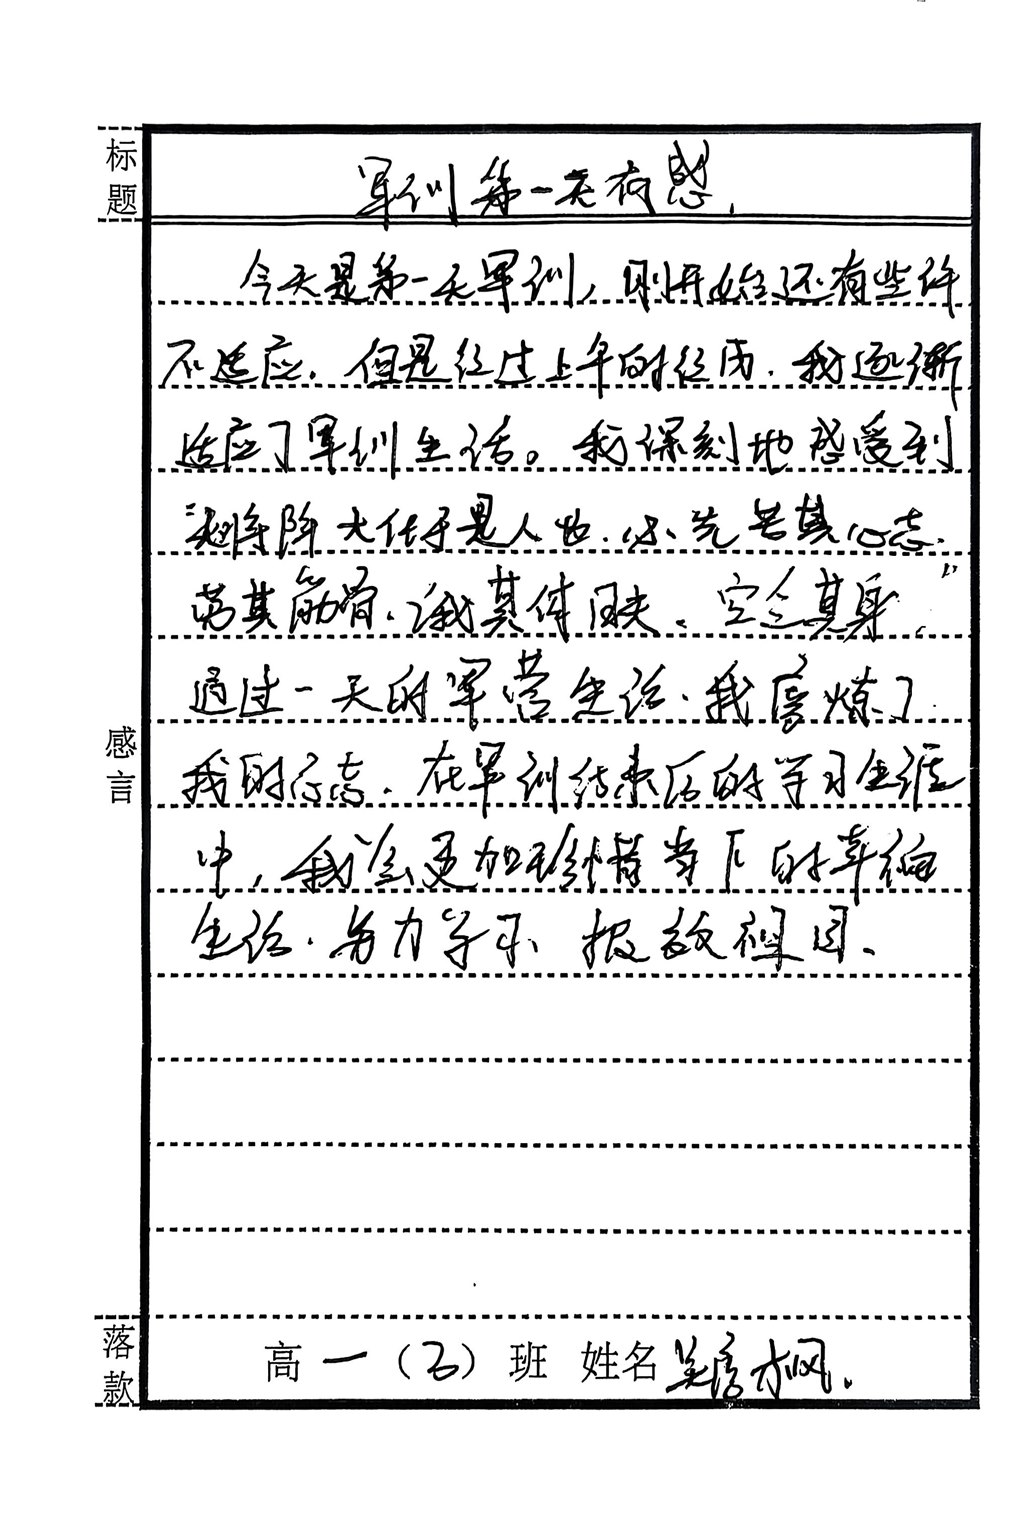 标题
军训第一天有感.
今天是第一天军训,刚开始还有些许
不适应.但是经过上午的经历.我逐渐
适应了军训生活。我深刻地感受到
"天将降大任于是人也.必先苦其心志.
劳其筋骨.饿其体肤.空乏其身."
通过一天的军营生活.我磨炼了
我的心志.在军训结束后的学习生涯
中,我会更加珍惜当下的幸福
生活.努力学习 报效祖国.
感言
落款
高一(5)班 姓名 吴 枫.